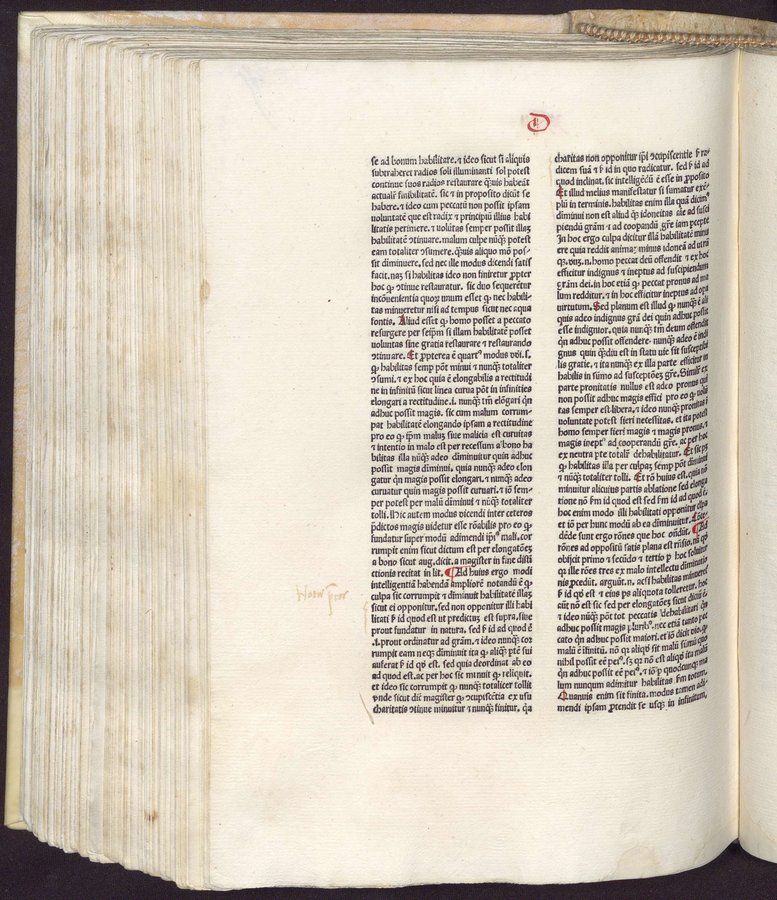 D
se ad bonum habilitare. ⁊ ideo sicut si aliquis
subtraheret radios soli illuminanti sol potest
continue suos radios restaurare q̃uis habeãt
actualẽ finibilitatẽ. sic ⁊ in proposito dicũt se
habere. ⁊ ideo cum peccatũ non possit ipsam
voluntatẽ que est radix ⁊ principiũ illius habi
litatis perimere. ⁊ volũtas semper possit illaȝ
habilitatẽ ꝯtinuare. malum culpe nũqȝ potest
eam totaliter ꝯsumere. q̃uis aliquo mõ pos/
sit diminuere. sed nec ille modus dicendi satis
facit. naȝ si habilitas ideo non finiretur ꝓpter
hoc ꝙ ꝯtinue restauratur. sic duo sequerẽtur
incõuenientia quoꝝ unum esset ꝙ nec habili-
tas minueretur nisi ad tempus sicut nec aqua
fontis. Aliud esset ꝙ homo posset a peccato
resurgere per seip̃m si illam habilitatẽ posset
voluntas sine gratia restaurare ⁊ restaurando
ꝯtinuare. Et ꝓpterea ẽ quart⁹ modus
ꝙ habilitas semp põt minui ⁊ nunqȝ totaliter
ꝯsumi. ⁊ ex hoc quia ẽ elongabilis a rectitudi
ne in infinitũ sicut linea curua põt in infinities
elongari a rectitudine. i. nunqȝ tm̃ elõgari qñ
adhuc possit magis. sic cum malum corrum-
pat habilitatẽ elongando ipsam a rectitudine
pro eo ꝙ ip̃m maluȝ siue malicia est curuitas
⁊ intentio in malo est per recessum a bono ha
bilitas illa nũqȝ adeo diminuitur quin adhuc
possit magis diminui. quia nunqȝ adeo elon
gatur qñ magis possit elongari. ⁊ nunqȝ adeo
curuatur quin magis possit curuari. ⁊ iõ sem-
per potest per malũ diminui ⁊ nũqȝ totaliter
tolli. Hic autem modus dicendi inter ceteros
p̃dictos magis videtur esse rõabilis pro eo ꝙ
fundatur super modũ adimendi ip̃i⁹ mali. cor
rumpit enim sicut dictum est per elongatõeȝ
a bono sicut aug. dicit. a magister in fine disti
ctionis recitat in lit. ¶ Ad huius ergo modi
intelligentiã habendã ampliorẽ notandũ ẽ ꝙ
culpa sic corrumpit ⁊ diminuit habilitatẽ illaȝ
sicut ei opponitur. sed non opponitur illi habi
litati ẜ id quod est ut predictuȝ est supra. siue
prout fundatur in natura. sed ẜ id ad quod ẽ
.i. prout ordinatur ad gr̃am. ⁊ ideo nunqȝ cor
rumpit eam neqȝ diminuit ita ꝙ aliqȝ ptẽ sui
auferat ẜ id qð est. sed quia deordinat ab eo
ad quod est. ac per hoc sic minuit ꝙ reliquit.
et ideo sic corrumpit ꝙ nunqȝ totaliter tollit
vnde sicut dic̃ magister ꝙ ꝯcupiscẽtia ex usu
charitatis ꝯtinue minuitur ⁊ nunqȝ finitur. q̃a
charitas non opponitur ip̃i ꝯcupiscentie ẜ ra-
dicem suã ⁊ ẜ id in quo radicatur. sed ẜ id ad
quod inclinat. sic intelligẽdũ ẽ esse in ꝓposito
Et illud melius manifestatur si sumatur exẽ-
plũ in terminis. habilitas enim illa quã dicim⁹
diminui non est aliud qȝ idoneitas aĩe ad susci
piendũ gr̃am ⁊ ad coopandũ gr̃e iam ccepte
In hoc ergo culpa dicitur illã habilitatẽ minu
ere quia reddit animaȝ minus idoneã ad
homo peccat deũ offendit ⁊ ex hoc
efficitur indignus ⁊ ineptus ad suscipiendum
gr̃am dei. in hoc etiã ꝙ peccat pronus ad ma
lum redditur. ⁊ in hoc efficitur ineptus ad opa
virtutum. Sed planum est illud ꝙ nunqȝ ẽ ali
quis adeo indignus gr̃a dei quin adhuc possit
esse indignior. quia nunqȝ tm̃ deum offendit
qñ adhuc possit offendere. nunqȝ adeo ẽ indi
gnus quin q̃diu est in statu uie sit susceptibi
lis gratie. ⁊ ita nunqȝ ex illa parte efficitur in
habilis in sũmo ad susceptõeȝ gr̃e. Similĩ ex
parte pronitatis nullus est adeo pronus qui
non possit adhuc magis effici pro eo ꝙ
tas semper est libera. ⁊ ideo nunqȝ pronitas
voluntate potest fieri necessitas. et ita potest
homo semper fieri magis ⁊ magis pronus. ⁊
magis inept⁹ ad cooperandũ gr̃e. ac per hoc
ex neutra pte totalĩ dehabilitatur. Et sic pȝ
ꝙ habilitas illa per culpaȝ semp põt diminui
⁊ nũqȝ totaliter tolli. Et rõ huius est. quia nõ
minuitur alicuius partis ablatione sed elonga
tione nõ ẜm id quod est sed ẜm id ad quod ẽ.
hoc enim modo illi habilitati opponitur culpa
et iõ per hunc modũ ab ea diminuitur.
dẽde sunt ergo rõnes que hoc oñdũt. ¶ Ad
rõnes ad oppositũ satis plana est rñsio. nã qð
obijcit primo ⁊ secũdo ⁊ tertio ꝑ hoc soluitur
qꝛ ille rões tres ex malo intellectu diminutio
nis ꝓcedũt. arguũt. n. acsi habilitas minueret̃
ẜ id qð est ⁊ eius ps aliquota tolleretur. hoc
aũt nõ est sic sed per elongatõeȝ sicut dictũ ẽ.
⁊ ideo nũqȝ põt tot peccatis dehabilitari qñ
adhuc possit magis plurib⁹. nec etiã tanto pec
cato qñ adhuc possit maiori. et iõ dicit
malũ ẽ
nihil possit eẽ pei⁹. sȝ qꝛ nõ est aliqð ita malũ
qñ adhuc possit eẽ pei⁹. ⁊ iõ ꝑ quodcunqȝ ma
lum nunquam adimitur habilitas ẜm totum.
Quanuis enim sit finita. modus tamen adi-
mendi ipsam ꝓtendit se usqȝ in infinitum.